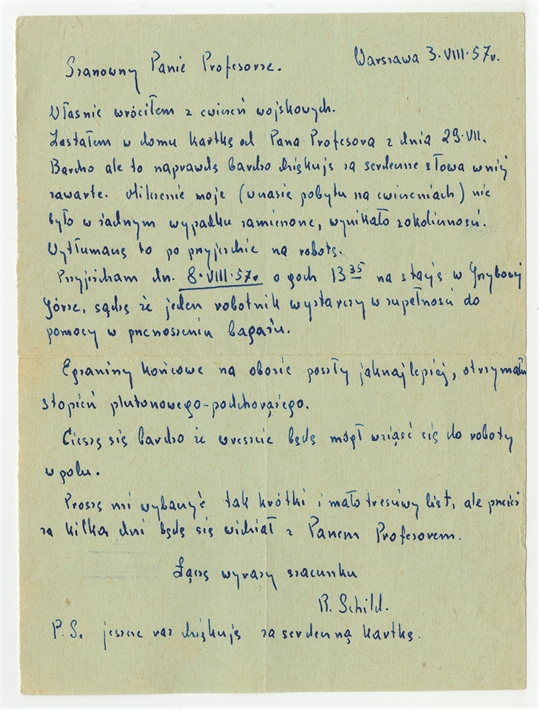 Warszawa 3.VIII.57r.
Szanowny Panie Profesorze.
Właśnie wróciłem z ćwiczeń wojskowych.
Zastałem w domu kartkę od Pana Profesora z dnia 29.VII.
Bardzo ale to naprawdę bardzo dziękuję za serdeczne słowa w niej
zawarte. Milczenie moje (w czasie pobytu na ćwiczeniach) nie
było w żadnym wypadku zamierzone, wynikało z okoliczności.
Wytłumaczę to po przyjeździe na roboty.
Przyjeżdżam dn. 8.VIII.57r o godz 13 35 na stację w Grzybowej
Górze, sądzę że jeden robotnik wystarczy w zupełności do
pomocy w przenoszeniu bagażu.
Egzaminy końcowe na obozie poszły jaknajlepiej, otrzymałem
stopień plutonowego-podchorążego.
Cieszę się bardzo że wreszcie będę mógł wziąść się do roboty
w polu.
Proszę mi wybaczyć tak krótki i mało treściwy list, ale przecież
za kilka dni będę się widział z Panem Profesorem.
Łączę wyrazy szacunku
R. Schild.
P.S. jeszcze raz dziękuję za serdeczną kartkę.